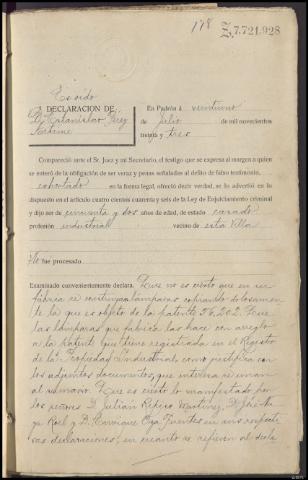 178
Z.7.721.928
DECLARACION DE
D. Estanislao Pérez
En Padrón á veintiuno
de Julio de mil novecientos
treinta y tres
Compareció ante el Sr. Juez y mi Secretario, el testigo que se expresa al margen a quien
se enteró de la obligación de ser veraz y penas señaladas al delito de falso testimonio,
exhortado en la forma legal, ofreció decir verdad, se le advertió en lo
dispuesto en el artículo cuatro cientos cuarenta y seis de la Ley de Enjuiciamiento criminal
y dijo ser de cincuenta y dos años de edad, de estado casado
profesión industrial vecino de esta Villa
No fue procesado
Examinado convenientemente declara. Que no es cierto que en su
fábrica se construyan lámparas copiando dolosamen-
te la que es objeto de la patente 76.262. Que
las lámparas que fabrica las hace con arreglo
a la Patente que tiene registrada en el Registro
de la Propiedad Industrial, como justifica con
los adjuntos documentos, que interesa se unan
al sumario. Que es cierto lo manifestado por
los señores D. Julián Piñeiro Martínez, D. José
Roel y D. Enrique Oza Fuentes en sus respecti-
vas declaraciones, en cuanto se refieren al decla